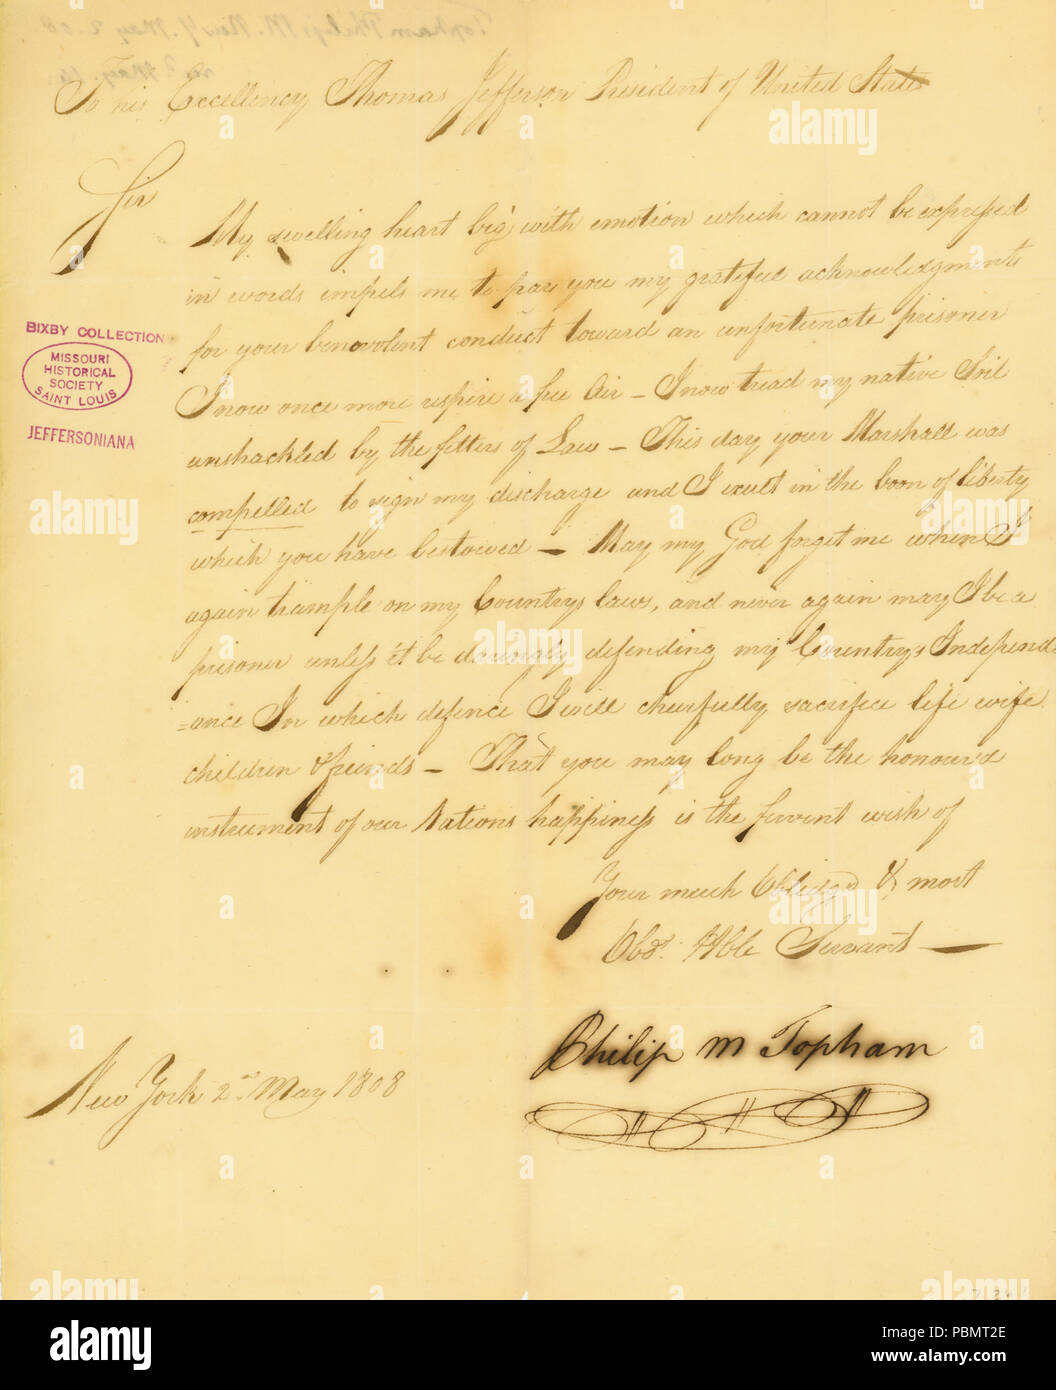 To his Excellency Thomas Jefferson President of United States
Sir
My swelling heart big with emotion which cannot be expressed
in words impels me to pay you my grateful acknowledgments
for your benevolent conduct toward an unfortunate prisoner
I now once more respire a free Air – I now tread my native Soil
unshackled by the fetters of Law – This day your Marshall was
compelled to sign my discharge and I exult in the boon of liberty
which you have bestowed – May my God forget me when I
again trample on my Countrys laws, and never again may I be a
prisoner unless it be daringly defending my Countrys Independ
=ance In which defence I will chearfully sacrifice life wife
children & friends – That you may long be the honour'd
instrument of our Nations happiness is the fervent wish of
Your much Obliged & most
Obdt. Hble Servant
Philip M Topham
New York 2nd May 1808
BIXBY COLLECTION
MISSOURI
HISTORICAL
SOCIETY
SAINT LOUIS
JEFFERSONIANA
Topham Philip M. New Y. May 2. 08.
recd May. 16.
alamy
alamy
Image ID: PBMT2E
www.alamy.com